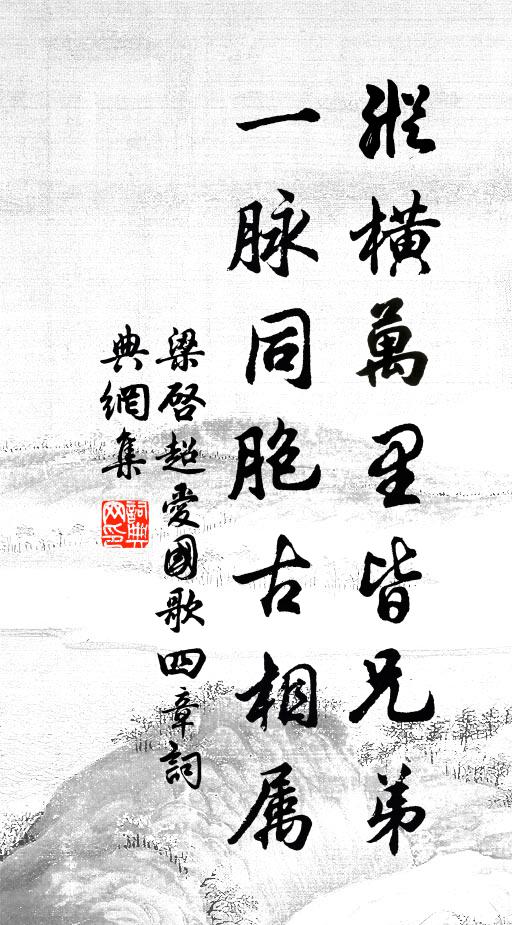 縱橫萬里皆兄弟
一脉同胞古相属
梁啓超愛國歌四章詞
典網集
詞典网印